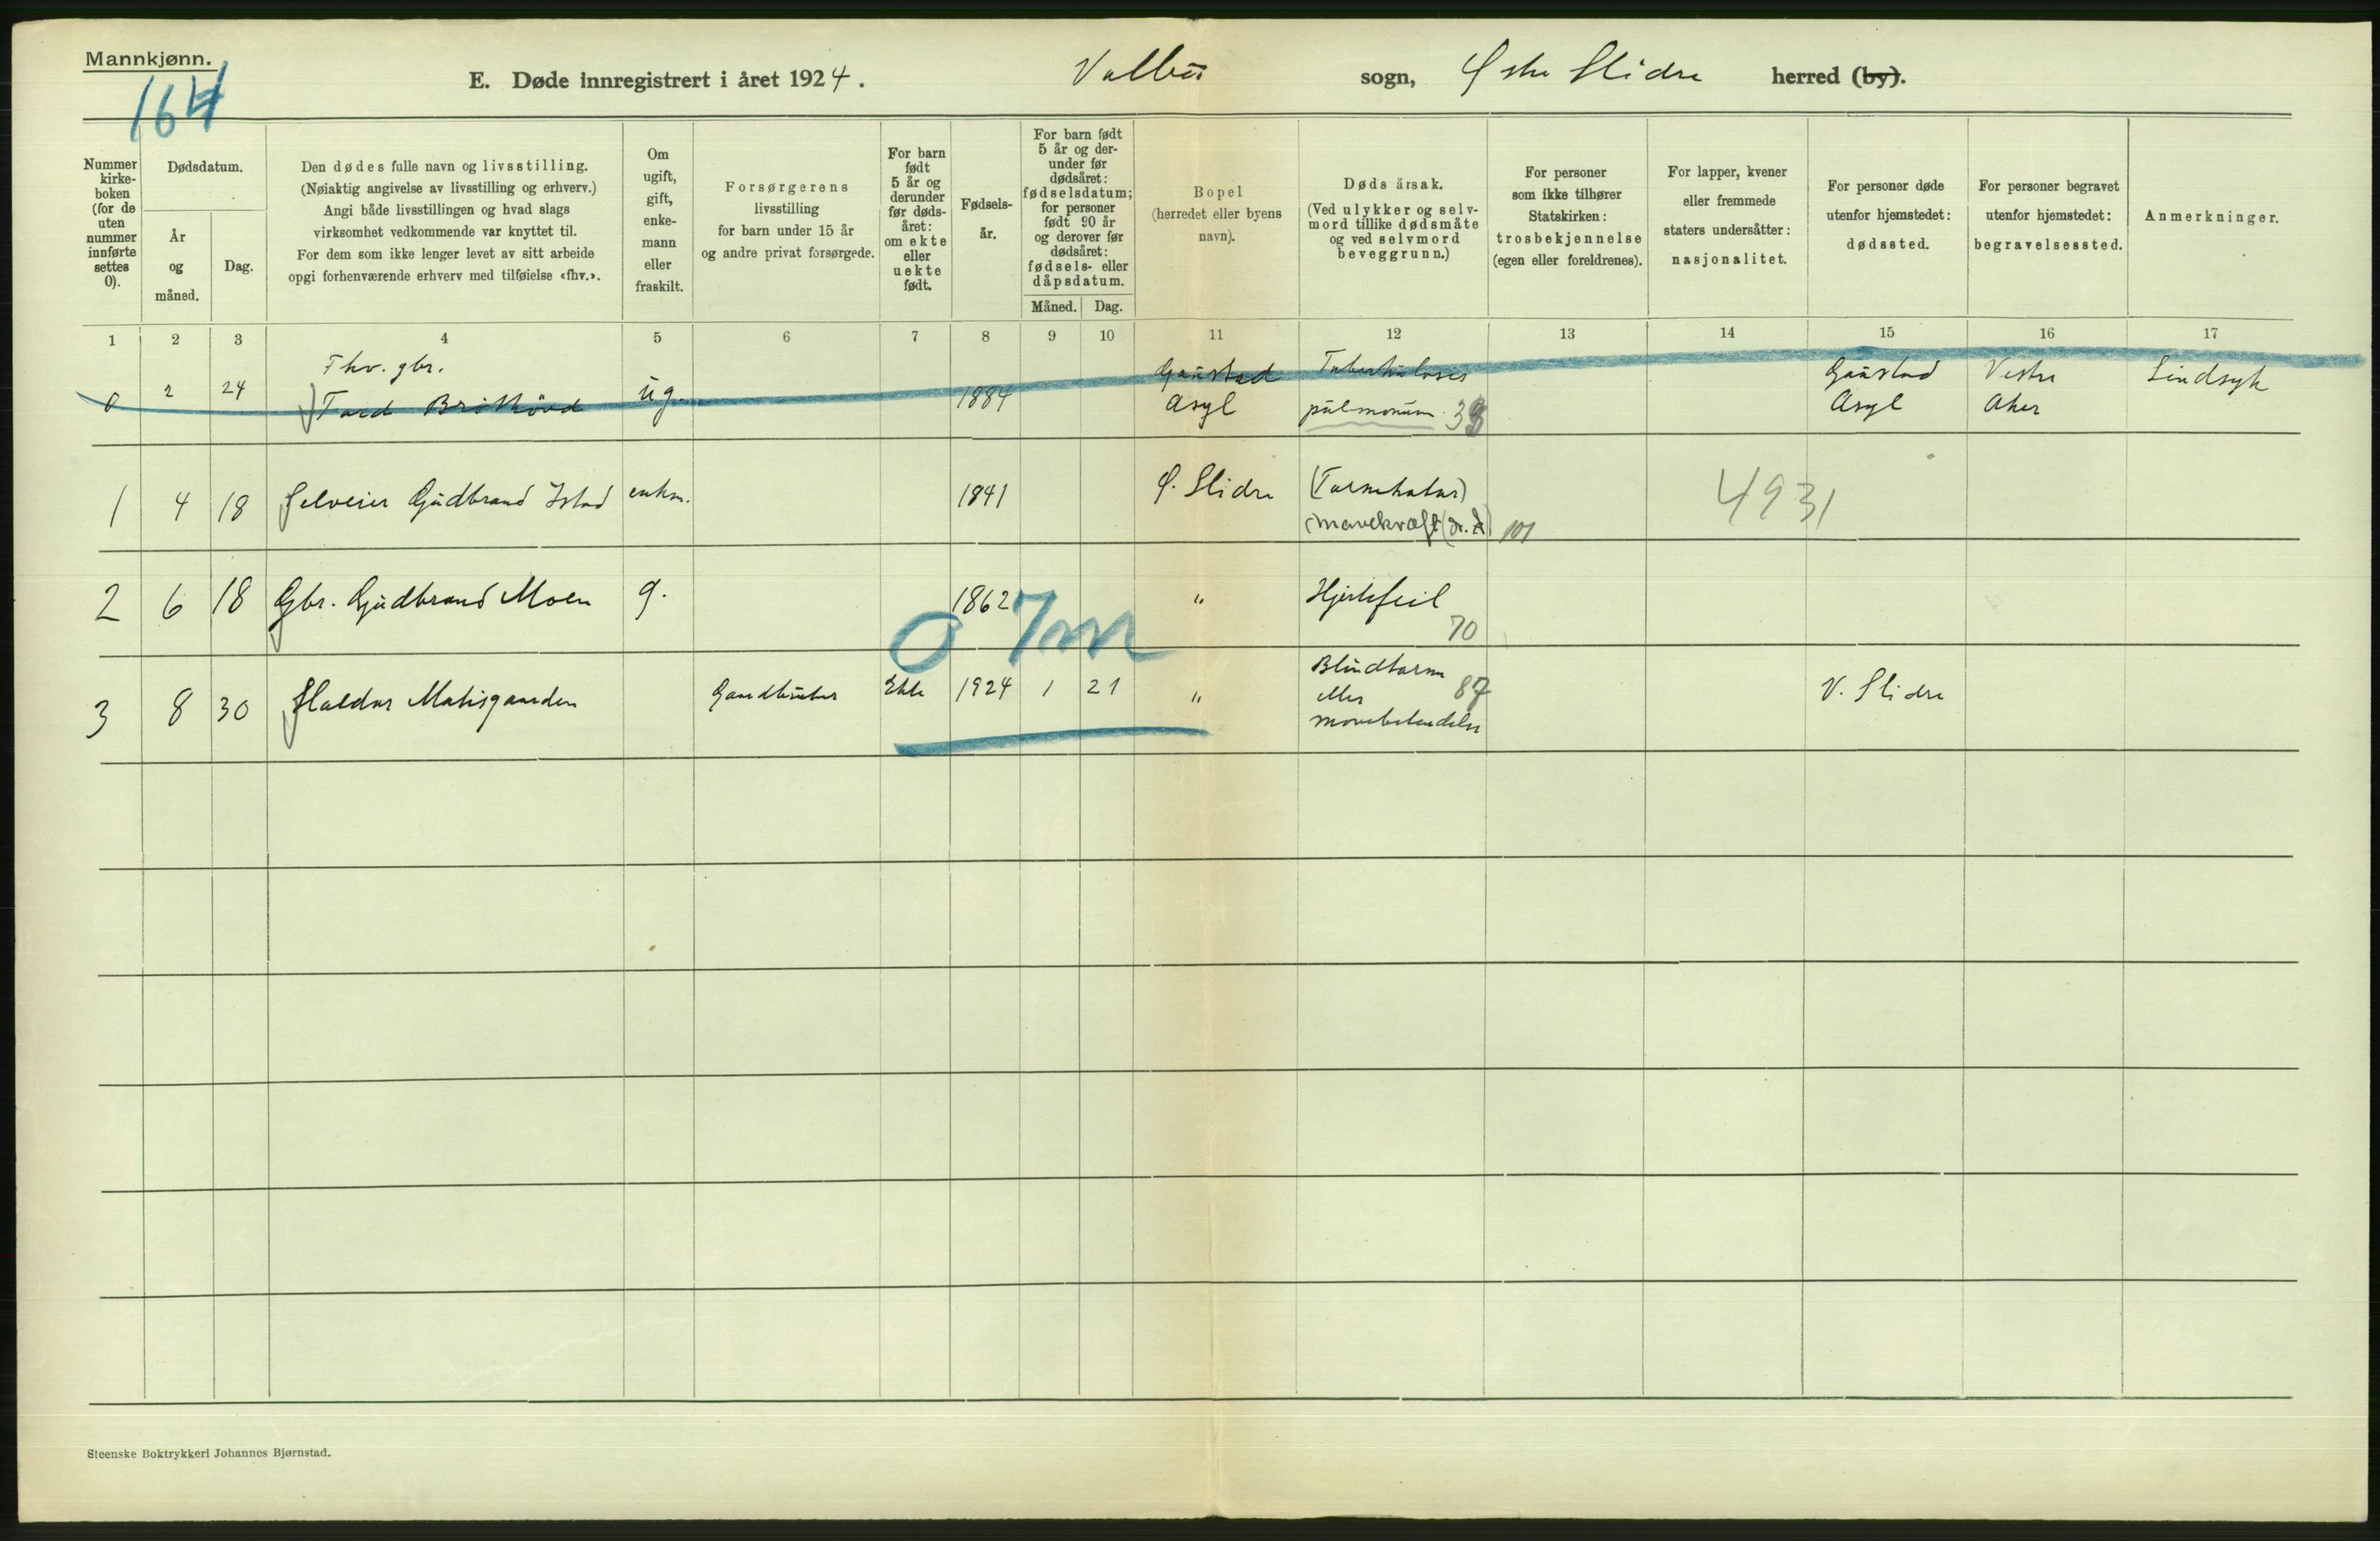 Mannkjønn.
164
E. Døde innregistrert i året 1924.
Vollbū sogn, Østre Slidre herred (by).
Nummer kirke-boken (for de uten nummer innførte settes 0).
Dødsdatum.
År og måned.
Dag.
Den dødes fulle navn og livsstilling.
(Nøiaktig angivelse av livsstilling og erhverv.)
Angi både livsstillingen og hvad slags
virksomhet vedkommende var knyttet til.
For dem som ikke lenger levet av sitt arbeide
opgi forhenværende erhverv med tilføielse «fhv.».
Om ugift, gift, enke-mann eller fraskilt.
Forsørgerens
livsstilling
for barn under 15 år
og andre privat forsørgede.
For barn født 5 år og derunder før døds-året: om ekte eller uekte født.
Fødsels-år.
For barn født 5 år og der-under før dødsåret: fødselsdatum; for personer født 90 år og derover før dødsåret: fødsels- eller dåpsdatum.
Måned. Dag.
Bopel
(herredet eller byens
navn).
Dødsårsak.
(Ved ulykker og selv-
mord tillike dødsmåte
og ved selvmord
beveggrunn.)
For personer
som ikke tilhører
Statskirken:
trosbekjennelse
(egen eller foreldrenes).
For lapper, kvener
eller fremmede
staters undersåtter:
nasjonalitet.
For personer døde
utenfor hjemstedet:
dødssted.
For personer begravet
utenfor hjemstedet:
begravelsessted.
Anmerkninger.
1 2 3 4 5 6 7 8 9 10 11 12 13 14 15 16 17
Fhv. gbr. Gaustad Tuberkulosis Gaustad Vestre Sindsyk
0 2 24 Tord ug. 1884 Asyl pulmonum Asyl Aker
1 4 18 Selveier Gudbrand Istad enkm. 1841 Ø. Slidre (Tarmkatar) 4931
(mavekræft 101
2 6 18 Gbr. Gudbrand Moen g. 1862 " Hjertefeil
70
0 7m
3 8 30 Haldor Matisgaarden Gaardbruker Ekte 1924 1 21 " Blindtarm V. Slidre
eller 87
mavebetendelse
Steenske Boktrykkeri Johannes Bjørnstad.